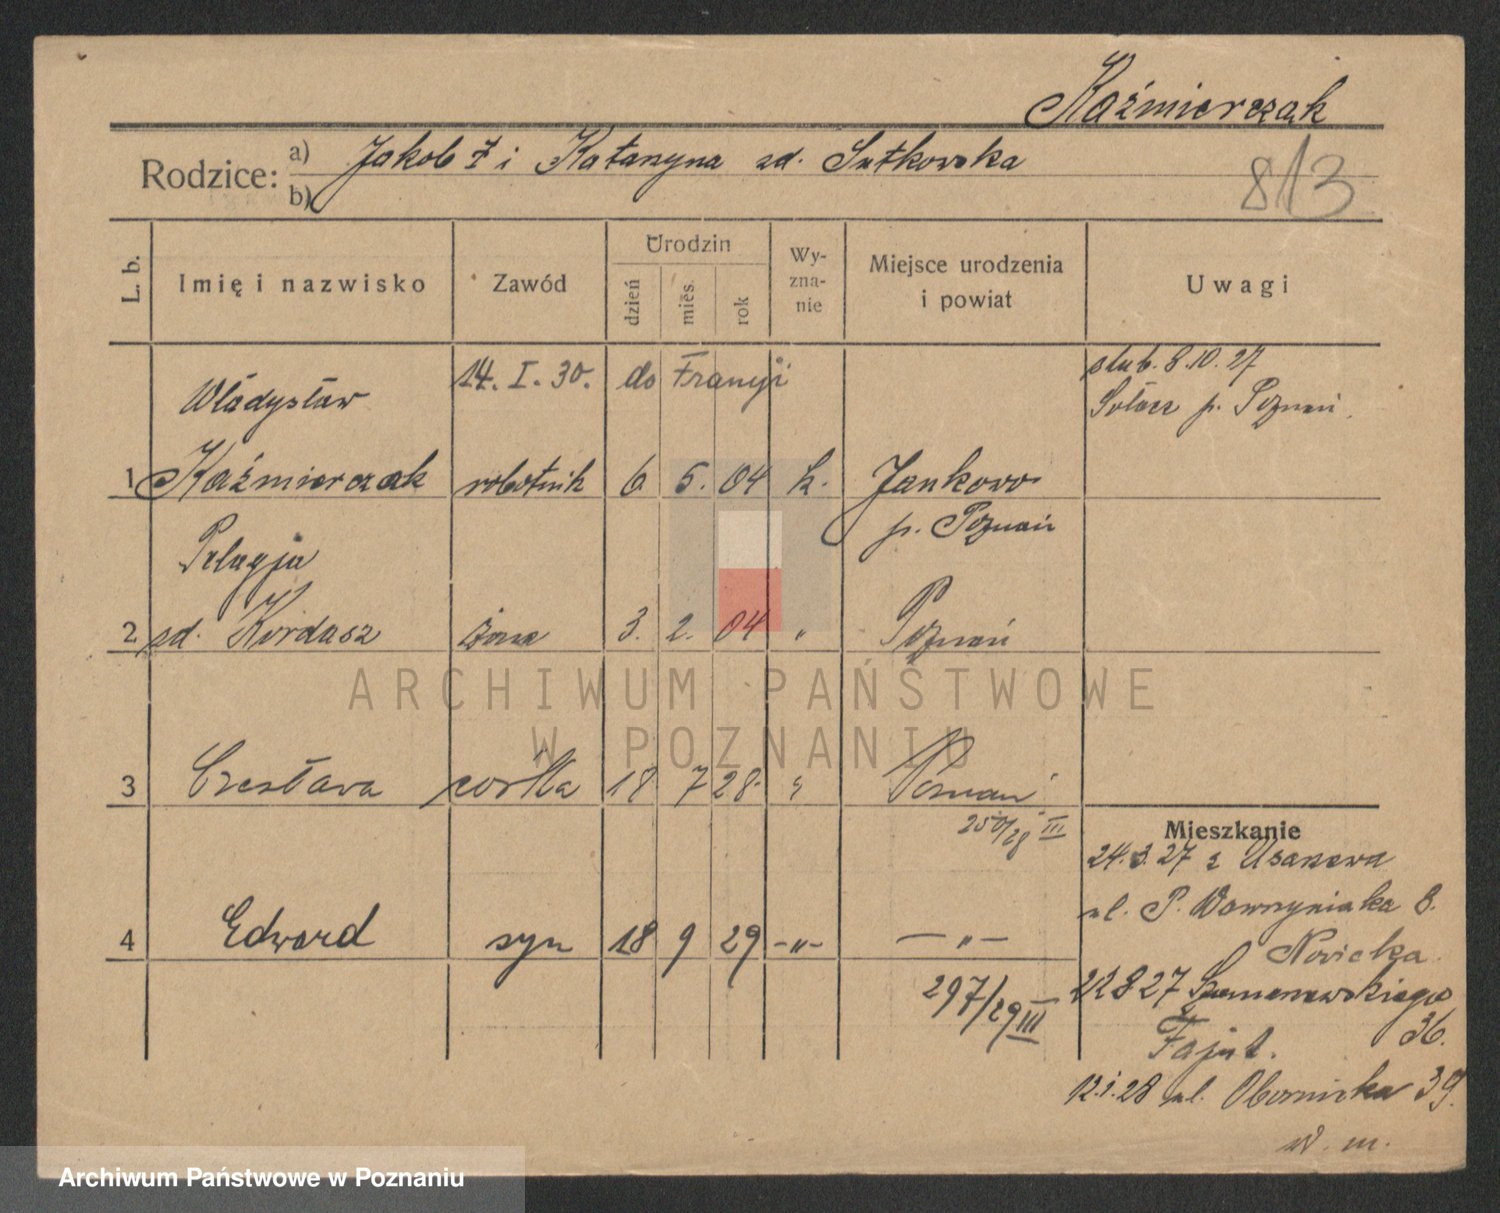 Kaźmierczak
Rodzice: a) Jakob i Katarzyna zd. Sutkowska
b)
813
L. b. Imię i nazwisko Zawód Urodzin dzień mies. rok Wyznanie Miejsce urodzenia i powiat Uwagi
14. I. 30. do Francji
ślub. 8.10.27
Sołacz p. Poznań.
Władysław
1 Kaźmierczak robotnik 6 5. 04 k. Jankowo
p. Poznań
Pelagja
2. zd. Kordasz żona 3. 2. 04 " Poznań
3 Czesława córka 18 7 28 " Poznań
250/28 III
4 Edward syn 18 9 29 -"- -"-
297/29 III
Mieszkanie
24.3.27 z
ul. P. Wawrzyniaka 8.
Nowicka
22 8 27 Szamarzewskiego
36.
Fajut.
12.1.28 ul. Obornicka 39.
w. m.
ARCHIWUM PAŃSTWOWE
W POZNANIU
Archiwum Państwowe w Poznaniu